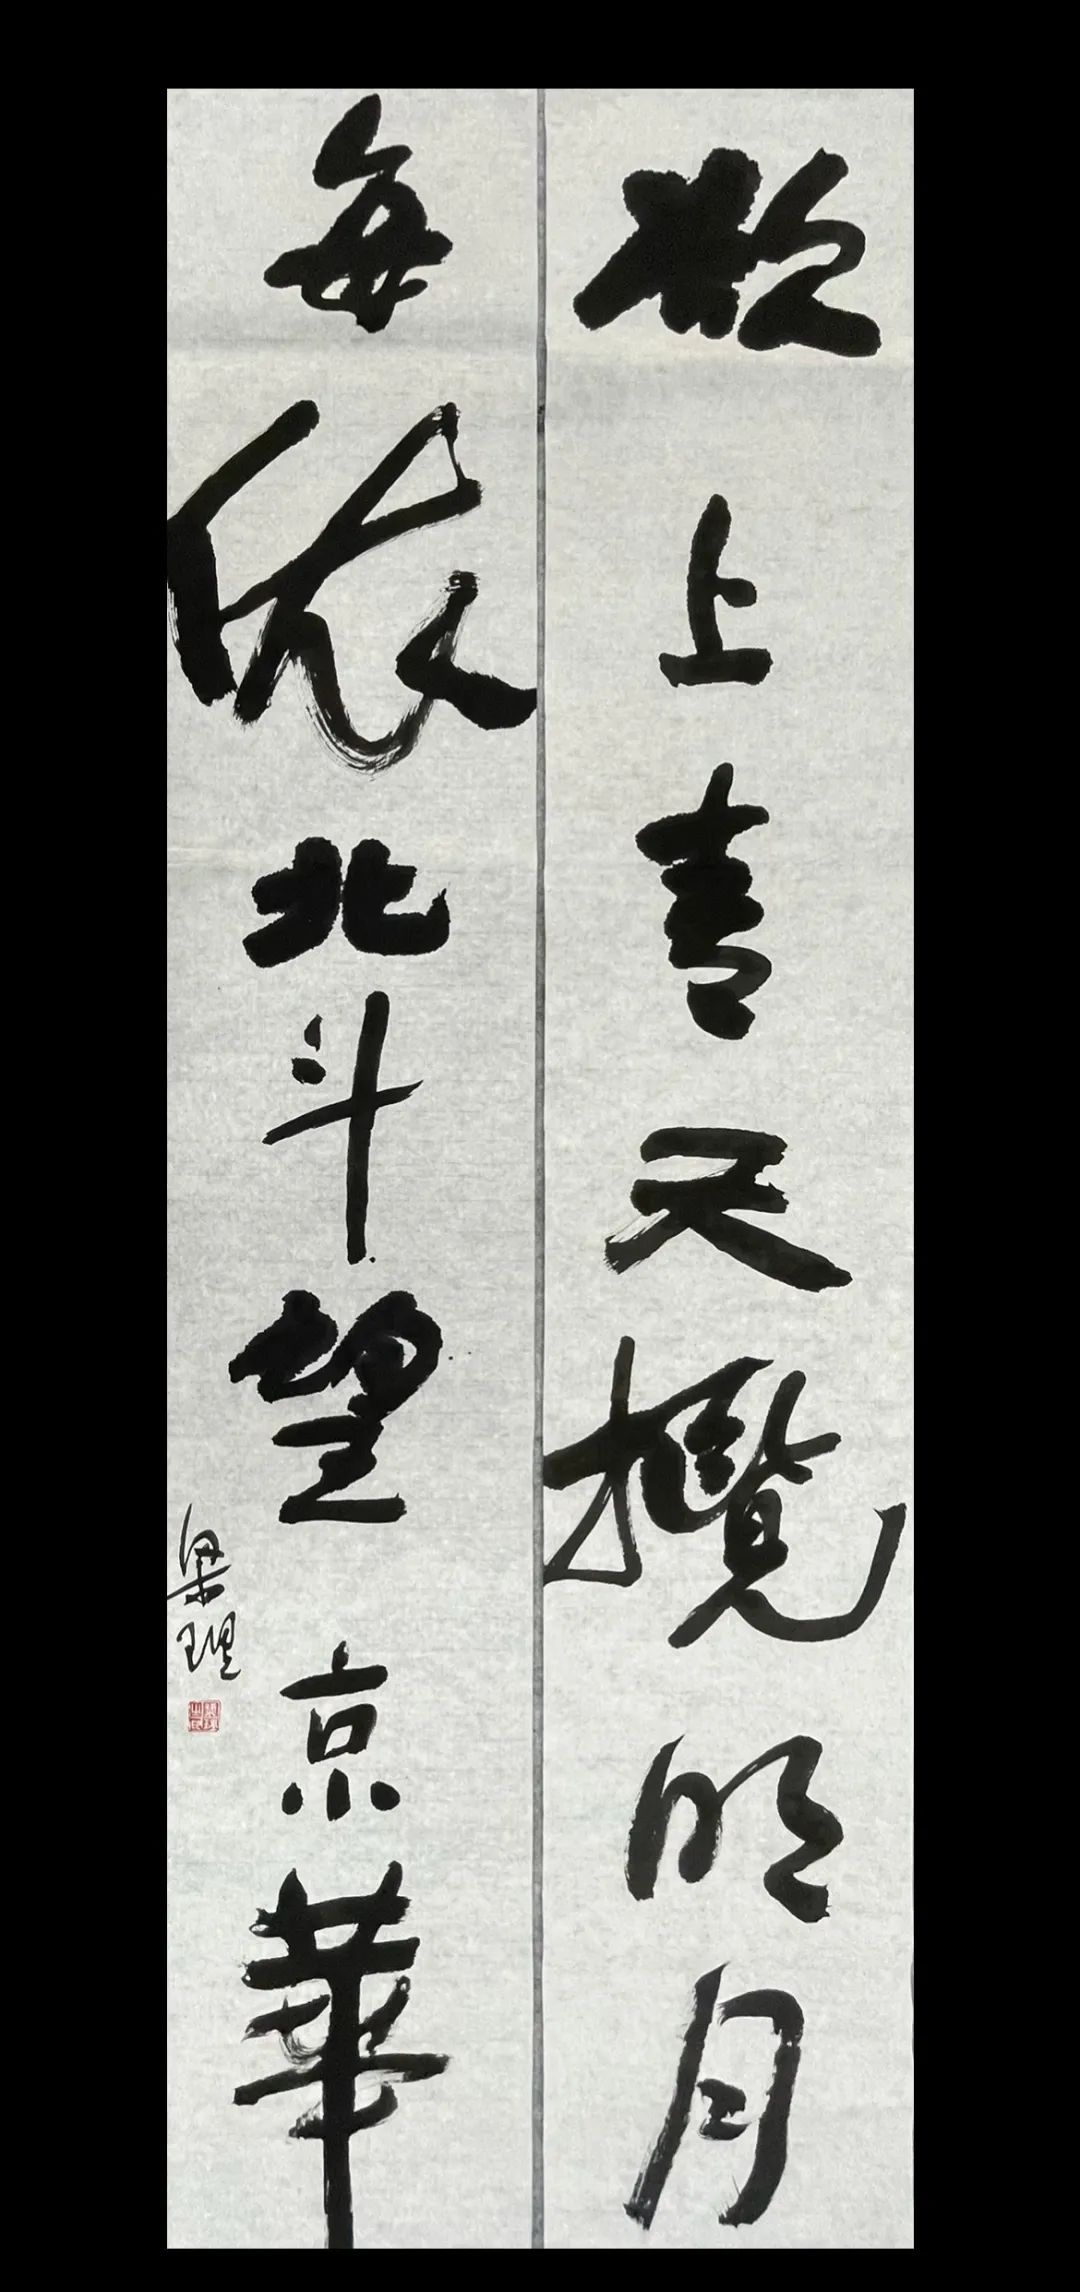 欲上青天攬明月
每依北斗望京華
梁理